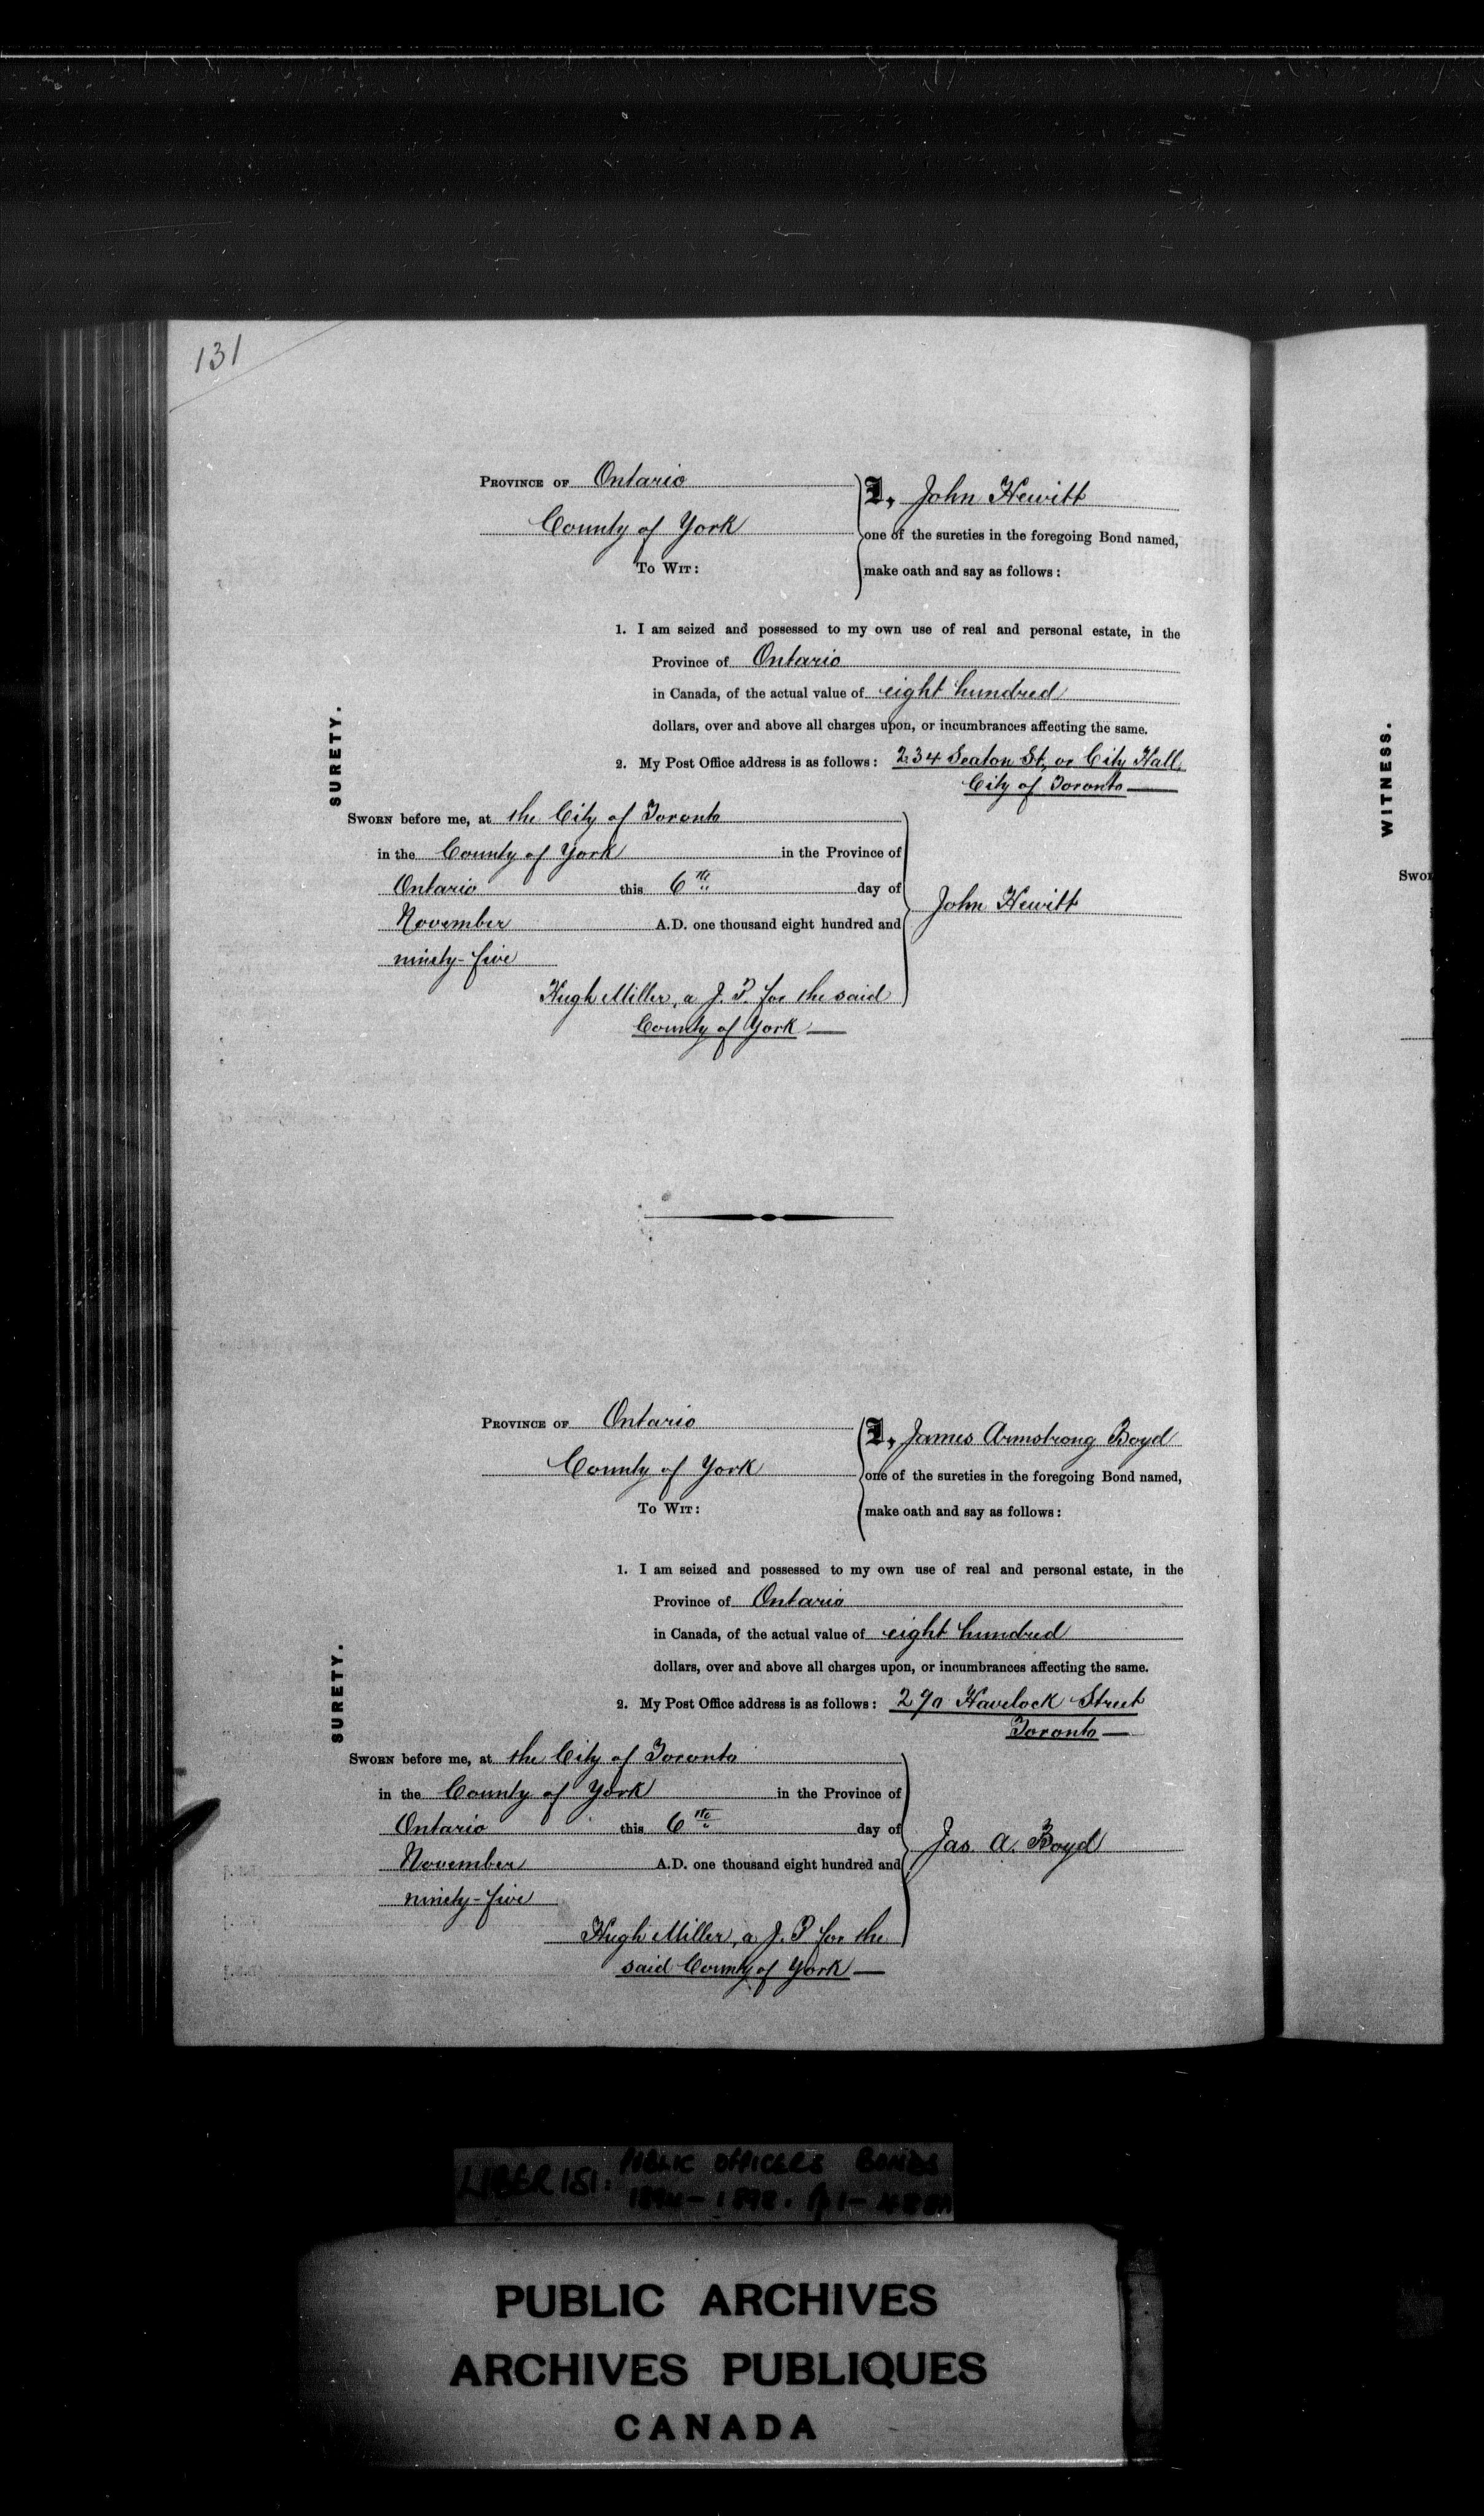 131
PROVINCE OF Ontario
County of York
TO WIT:
I, John Hewitt
one of the sureties in the foregoing Bond named,
make oath and say as follows:
1. I am seized and possessed to my own use of real and personal estate, in the
Province of Ontario
in Canada, of the actual value of eight hundred
dollars, over and above all charges upon, or incumbrances affecting the same.
2. My Post Office address is as follows: 234 Seaton St, or City Hall,
City of Toronto
SURETY.
SWORN before me, at the City of Toronto
in the County of York in the Province of
Ontario this 6th day of
November A.D. one thousand eight hundred and
ninety-five
John Hewitt
Hugh Miller, a J. P. for the said
County of York
PROVINCE OF Ontario
County of York
TO WIT:
I, James Armstrong Boyd
one of the sureties in the foregoing Bond named,
make oath and say as follows:
1. I am seized and possessed to my own use of real and personal estate, in the
Province of Ontario
in Canada, of the actual value of eight hundred
dollars, over and above all charges upon, or incumbrances affecting the same.
2. My Post Office address is as follows: Havelock Street
Toronto
SURETY.
SWORN before me, at the City of Toronto
in the County of York in the Province of
Ontario this 6th day of
November A.D. one thousand eight hundred and
ninety-five
Jas. A. Boyd
Hugh Miller, a J. P. for the
said County of York
WITNESS.
SWOR
LIBER 151: PUBLIC OFFICERS BONDS
PUBLIC ARCHIVES
ARCHIVES PUBLIQUES
CANADA